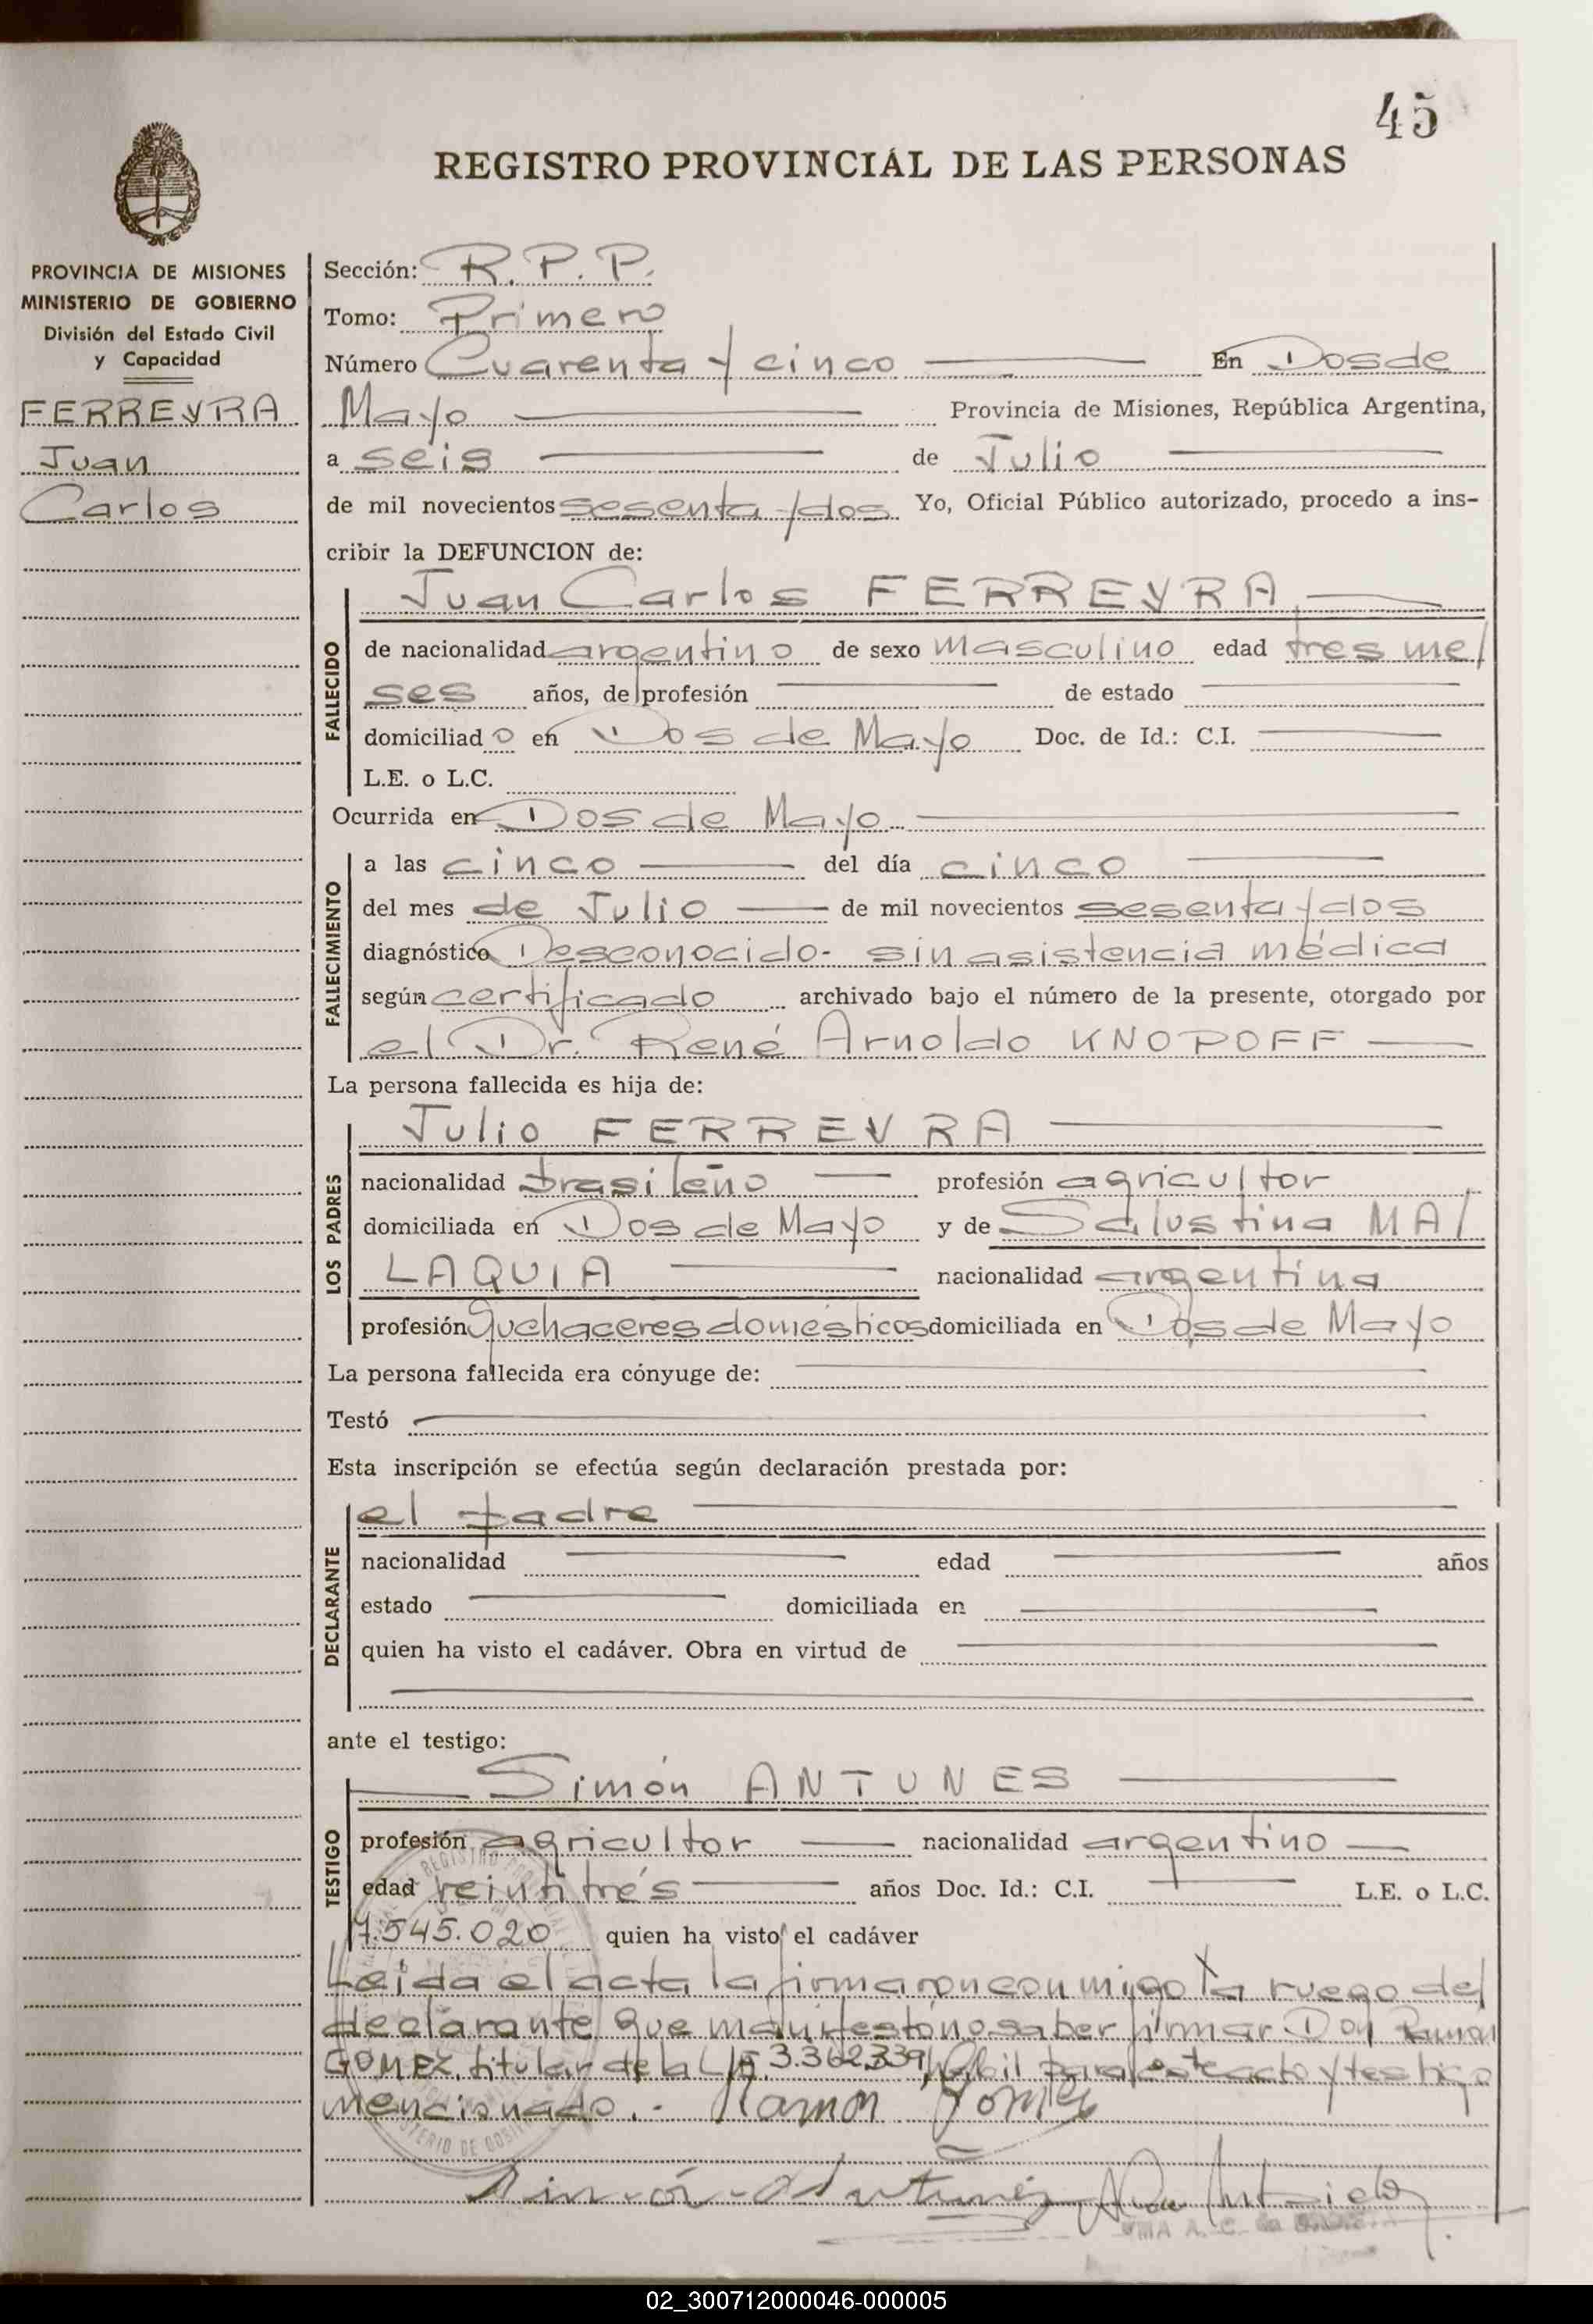 45
REGISTRO PROVINCIÁL DE LAS PERSONAS
PROVINCIA DE MISIONES
MINISTERIO DE GOBIERNO
División del Estado Civil
y Capacidad
FERREYRA
Juan
Carlos
Sección: R.P.P.
Tomo: Primero
Número Cuarenta y cinco En Dos de
Mayo Provincia de Misiones, República Argentina,
a seis de Julio
de mil novecientos sesenta y dos Yo, Oficial Público autorizado, procedo a ins-
cribir la DEFUNCION de:
FALLECIDO
Juan Carlos FERREYRA,
de nacionalidad argentino de sexo masculino edad tres me/
ses años, de profesión de estado
domiciliado en Dos de Mayo Doc. de Id.: C.I.
L.E. o L.C.
Ocurrida en Dos de Mayo
FALLECIMIENTO
a las cinco del día cinco
del mes de Julio de mil novecientos sesenta y dos
diagnóstico Desconocido- sin asistencia médica
según certificado archivado bajo el número de la presente, otorgado por
el Dr. René Arnoldo KNOPOFF
La persona fallecida es hija de:
LOS PADRES
Julio FERREYRA
nacionalidad brasileño profesión agricultor
domiciliada en Dos de Mayo y de Salustina MA/
LAQUIA nacionalidad argentina
profesión quehaceres domésticos domiciliada en Dos de Mayo
La persona fallecida era cónyuge de:
Testó
Esta inscripción se efectúa según declaración prestada por:
DECLARANTE
el padre
nacionalidad edad años
estado domiciliada en
quien ha visto el cadáver. Obra en virtud de
ante el testigo:
TESTIGO
Simón ANTUNES
profesión agricultor nacionalidad argentino
edad veintitrés años Doc. Id.: C.I. L.E. o L.C.
7.545.020 quien ha visto el cadáver
Leida el acta la firmaron conmigo a ruego del
declarante que manifestó no saber firmar Don Ramon
GOMEZ, titular de la L/E 3.362.339, hábil para este acto y testigo
mencionado.- Ramon Gomez
Simón Antunez
02_300712000046-000005